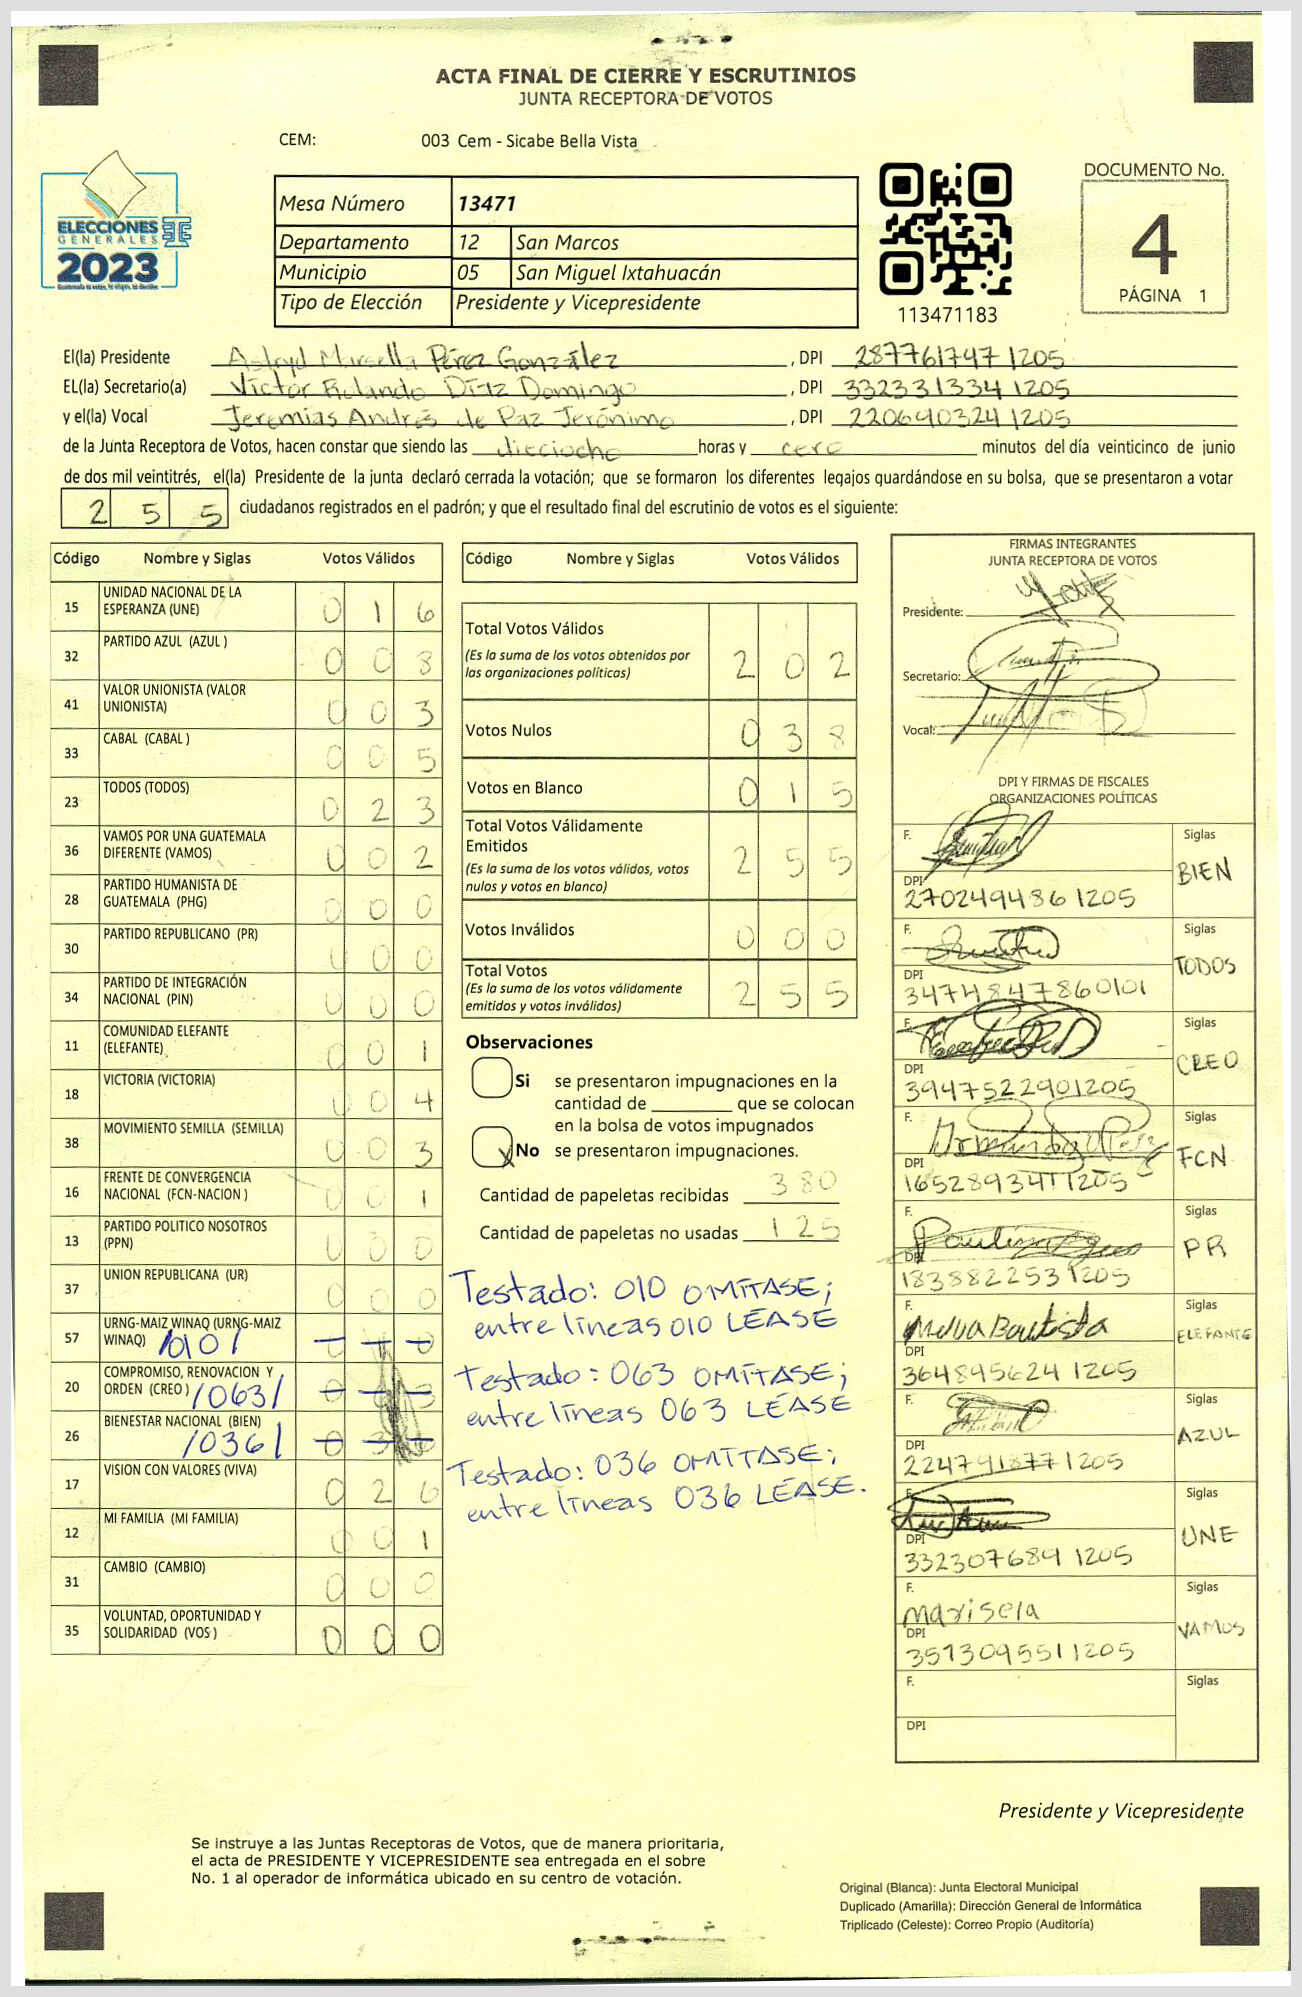 ACTA FINAL DE CIERRE Y ESCRUTINIOS
JUNTA RECEPTORA DE VOTOS
CEM: 003 Cem - Sicabe Bella Vista
ELECCIONES
GENERALES
2023
Mesa Número 13471
Departamento 12 San Marcos
Municipio 05 San Miguel Ixtahuacán
Tipo de Elección Presidente y Vicepresidente
113471183
DOCUMENTO No.
4
PÁGINA 1
El(la) Presidente Astryd Marsella Pérez González, DPI 287761747 1205
EL(la) Secretario(a) Víctor Rolando Díaz Domingo, DPI 332331334 1205
y el(la) Vocal Jeremías Andrés de Paz Jerónimo, DPI 220640324 1205
de la Junta Receptora de Votos, hacen constar que siendo las dieciocho horas y cero minutos del día veinticinco de junio
de dos mil veintitrés, el(la) Presidente de la junta declaró cerrada la votación; que se formaron los diferentes legajos guardándose en su bolsa, que se presentaron a votar
2 5 5 ciudadanos registrados en el padrón; y que el resultado final del escrutinio de votos es el siguiente:
Código Nombre y Siglas Votos Válidos
15 UNIDAD NACIONAL DE LA ESPERANZA (UNE) 0 1 6
32 PARTIDO AZUL (AZUL ) 0 0 8
41 VALOR UNIONISTA (VALOR UNIONISTA) 0 0 3
33 CABAL (CABAL ) 0 0 5
23 TODOS (TODOS) 0 2 3
36 VAMOS POR UNA GUATEMALA DIFERENTE (VAMOS) 0 0 2
28 PARTIDO HUMANISTA DE GUATEMALA (PHG) 0 0 0
30 PARTIDO REPUBLICANO (PR) 0 0 0
34 PARTIDO DE INTEGRACIÓN NACIONAL (PIN) 0 0 0
11 COMUNIDAD ELEFANTE (ELEFANTE) 0 0 1
18 VICTORIA (VICTORIA) 0 0 4
38 MOVIMIENTO SEMILLA (SEMILLA) 0 0 3
16 FRENTE DE CONVERGENCIA NACIONAL (FCN-NACION ) 0 0 1
13 PARTIDO POLITICO NOSOTROS (PPN) 0 0 0
37 UNION REPUBLICANA (UR) 0 0 0
57 URNG-MAIZ WINAQ (URNG-MAIZ WINAQ) /010/
20 COMPROMISO, RENOVACION Y ORDEN (CREO ) /063/
26 BIENESTAR NACIONAL (BIEN) /036/
17 VISION CON VALORES (VIVA) 0 2 6
12 MI FAMILIA (MI FAMILIA) 0 0 1
31 CAMBIO (CAMBIO) 0 0 0
35 VOLUNTAD, OPORTUNIDAD Y SOLIDARIDAD (VOS ) 0 0 0
Código Nombre y Siglas Votos Válidos
Total Votos Válidos 2 0 2
(Es la suma de los votos obtenidos por
las organizaciones políticas)
Votos Nulos 0 3 8
Votos en Blanco 0 1 5
Total Votos Válidamente
Emitidos 2 5 5
(Es la suma de los votos válidos, votos
nulos y votos en blanco)
Votos Inválidos 0 0 0
Total Votos 2 5 5
(Es la suma de los votos válidamente
emitidos y votos inválidos)
Observaciones
Si se presentaron impugnaciones en la
cantidad de ________ que se colocan
en la bolsa de votos impugnados
X No se presentaron impugnaciones.
Cantidad de papeletas recibidas 380
Cantidad de papeletas no usadas 125
Testado: 010 OMÍTASE;
entre líneas 010 LÉASE
Testado: 063 OMÍTASE;
entre líneas 063 LÉASE
Testado: 036 OMÍTASE;
entre líneas 036 LÉASE.
FIRMAS INTEGRANTES
JUNTA RECEPTORA DE VOTOS
Presidente:
Secretario:
Vocal:
DPI Y FIRMAS DE FISCALES
ORGANIZACIONES POLÍTICAS
F. Siglas
DPI BIEN
270249486 1205
F. Siglas
DPI TODOS
3474847860101
F. Siglas
DPI CREO
3947522901205
F. Siglas
DPI FCN
1652893411205
F. Siglas
DPI PR
183882253 1205
F. Melva Bautista Siglas
DPI ELEFANTE
364895624 1205
F. Siglas
DPI AZUL
224791877 1205
F. Siglas
DPI UNE
332307689 1205
F. Marisela Siglas
DPI VAMOS
357309551 1205
F. Siglas
DPI
Presidente y Vicepresidente
Se instruye a las Juntas Receptoras de Votos, que de manera prioritaria,
el acta de PRESIDENTE Y VICEPRESIDENTE sea entregada en el sobre
No. 1 al operador de informática ubicado en su centro de votación.
Original (Blanca): Junta Electoral Municipal
Duplicado (Amarilla): Dirección General de Informática
Triplicado (Celeste): Correo Propio (Auditoría)